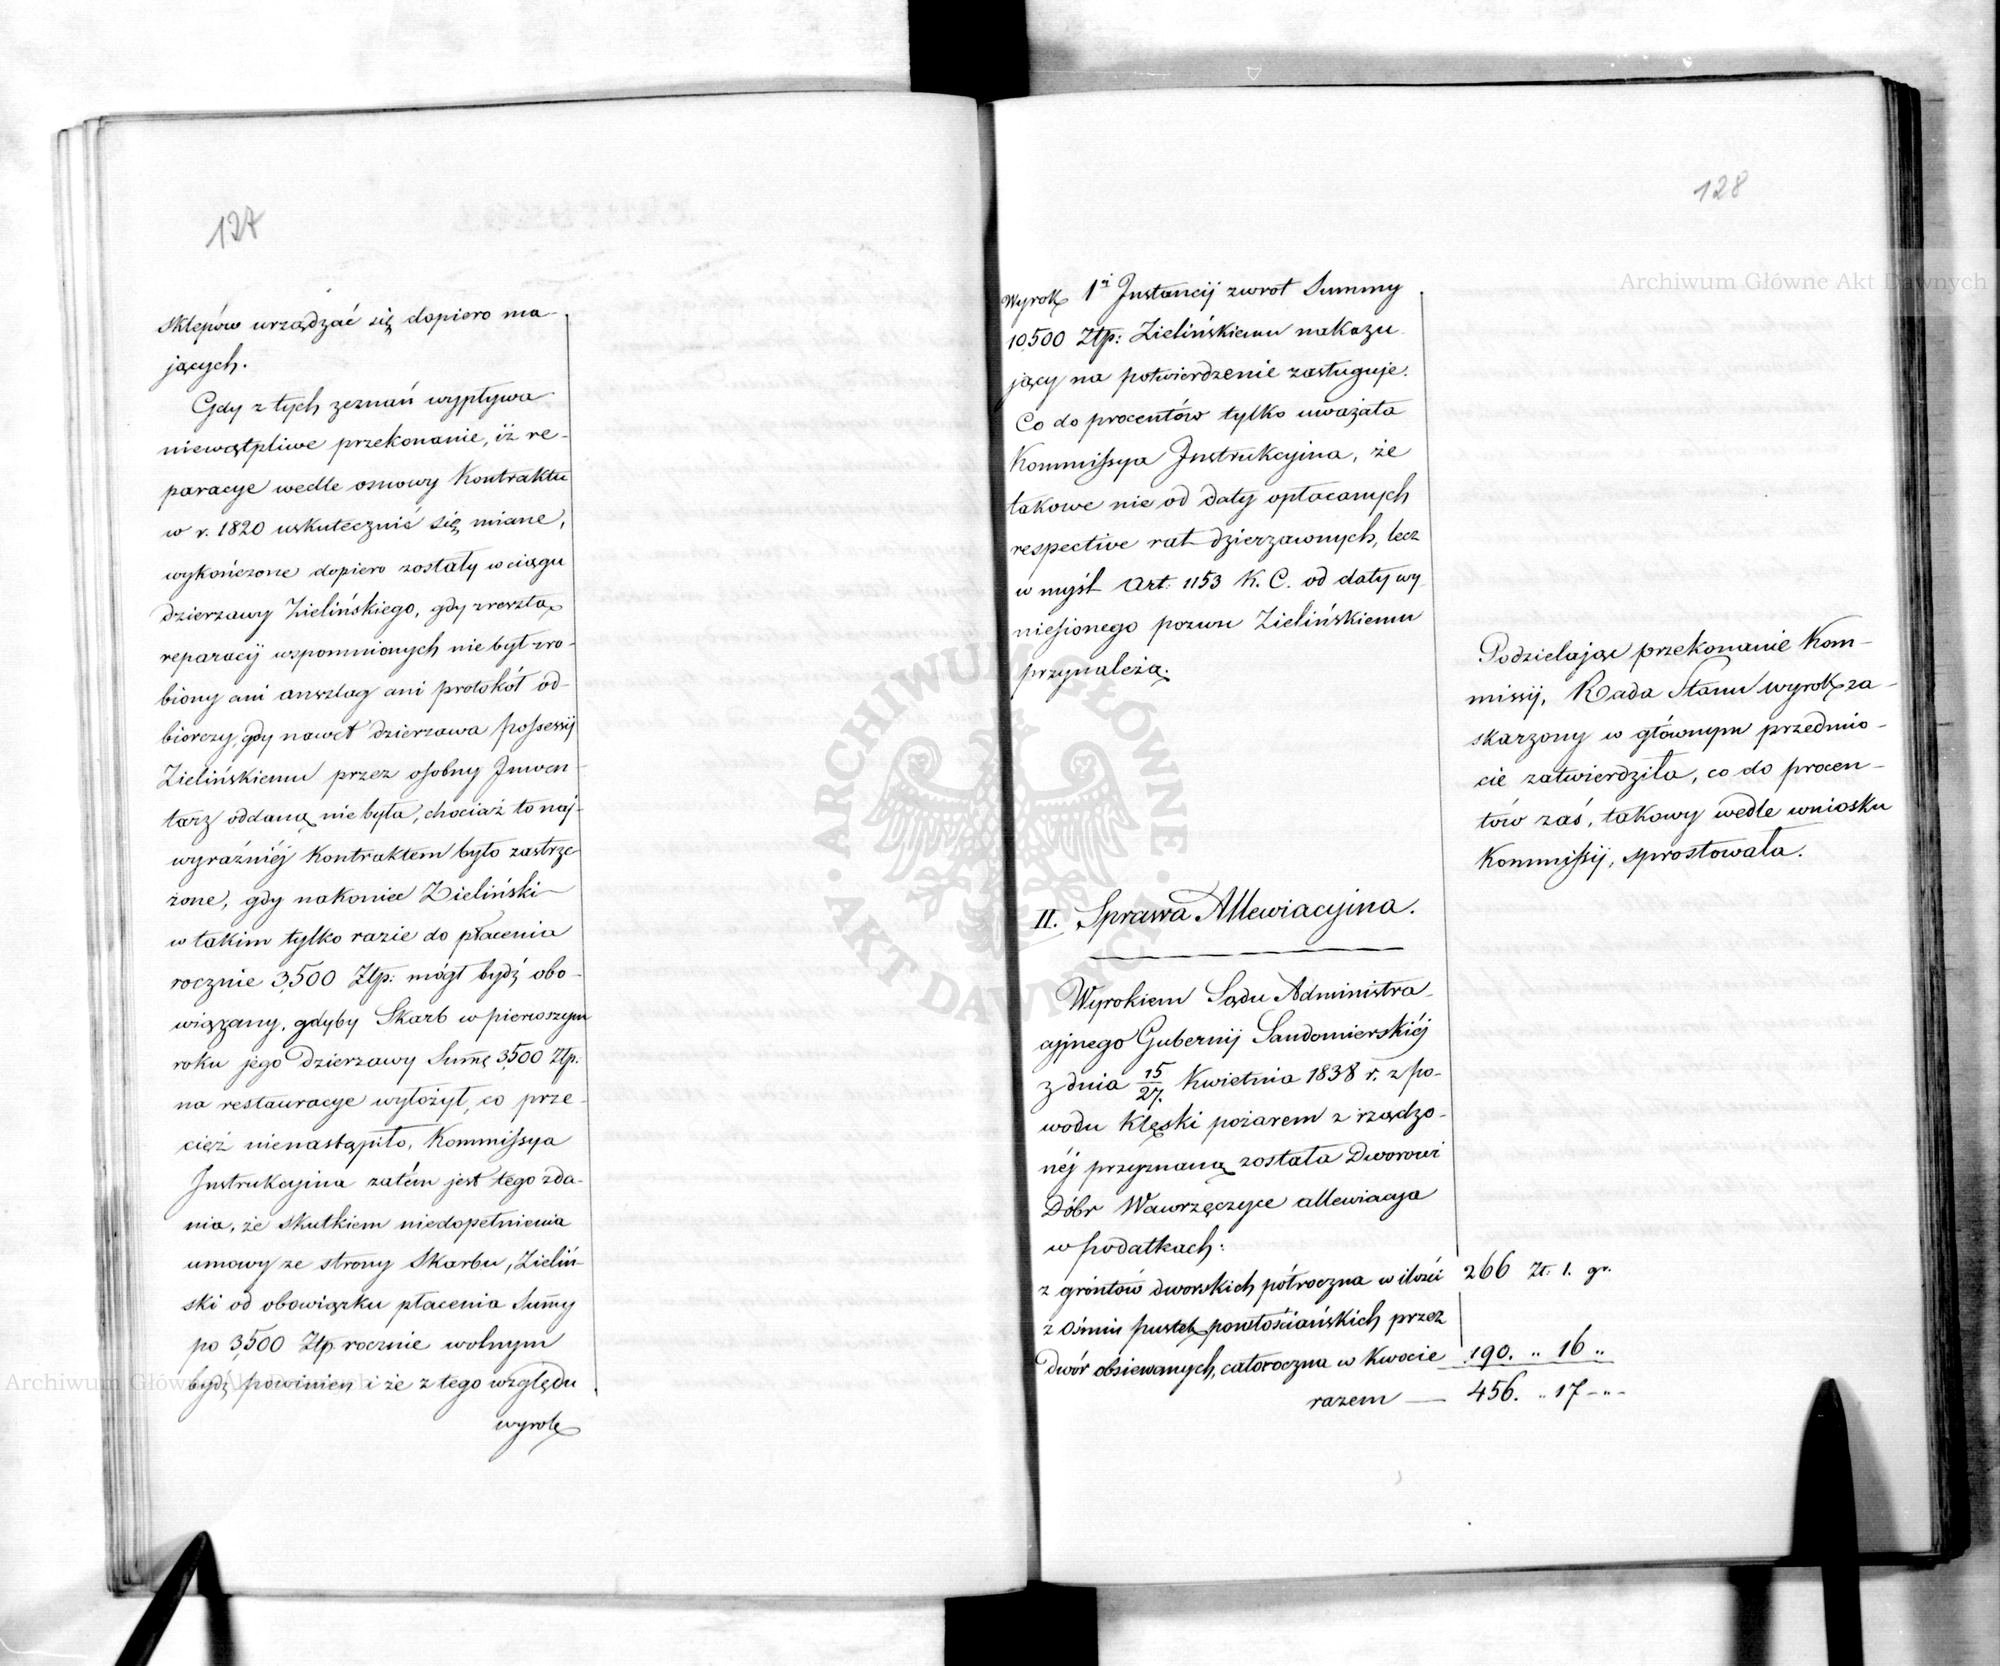 127
sklepów urządzać się dopiero ma-
jących.
Gdy z tych zeznań wypływa
niewątpliwe przekonanie, iż re-
paracye wedle osnowy Kontraktu
w r. 1820 uskutecznić się miane,
wykończone dopiero zostały w ciągu
dzierzawy Zielińskiego, gdy zresztą
reparacij wspomnionych nie był zro-
biony ani anszlag ani protokół od-
biorczy, gdy nawet dzierzawa possessij
Zielińskiemu przez osobny Inwen-
tarz oddaną nie była, chociaż to naj-
wyraźniéj Kontraktem było zastrze-
żone, gdy nakoniec Zieliński
w takim tylko razie do płacenia
rocznie 3,500 Złp: mógł bydź obo-
wiązany, gdyby Skarb w pierwszym
roku jego dzierzawy Summę 3,500 Złp.
na restauracye wyłożył, co prze-
cięż nienastąpiło, Kommissya
Instrukcyina zatém jest tego zda-
nia, że skutkiem niedopełnienia
umowy ze strony Skarbu, Zieliń-
ski od obowiązku płacenia Summy
po 3,500 Złp. rocznie wolnym
bydź powinien i że z tego względu
wyrok
128
Wyrok 1éj Instancij zwrot Summy
10,500 Złp: Zielińskiemu nakazu-
jący na potwierdzenie zasługuje.
Co do procentów tylko uważała
Kommissya Instrukcyina, że
takowe nie od daty opłacanych
respective rat dzierzawnych, lecz
w myśl Art: 1153 K. C. od daty wy
niesionego pozwu Zielińskiemu
przynależą.
Podzielając przekonanie Kom-
missij, Rada Stanu wyrok za-
skarzony w głównym przedmio-
cie zatwierdziła, co do procen-
tów zaś, takowy wedle wniosku
Kommissij, sprostowała.
II. Sprawa Allewiacyjna.
Wyrokiem Sądu Administra-
cyjnego Gubernij Sandomierskiéj
z dnia 15/27. Kwietnia 1838 r. z po-
wodu klęski pożarem zrządzo-
néj przyznaną została Dworowi
Dóbr Wawrzęczyce allewiacya
w podatkach:
z gróntów dworskich półroczna w ilości 266 Zł. 1. gr.
z ośmiu pustek powłościańskich przez
Dwór obsiewanych, całoroczna w Kwocie 190. „ 16 „
razem — 456. „ 17 - „ -
Archiwum Główne Akt Dawnych
Archiwum Główne Akt Dawnych
ARCHIWUM GŁÓWNE AKT DAWNYCH